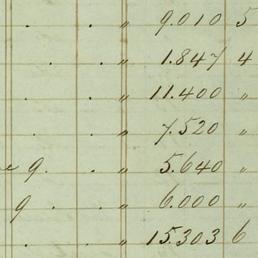 . . " 9.010 5
. . " 1.847 4
. . " 11.400 "
. . " 7.520 "
e 9. . " 5.640 "
9 . . " 6.000 "
. . " 15.303 6